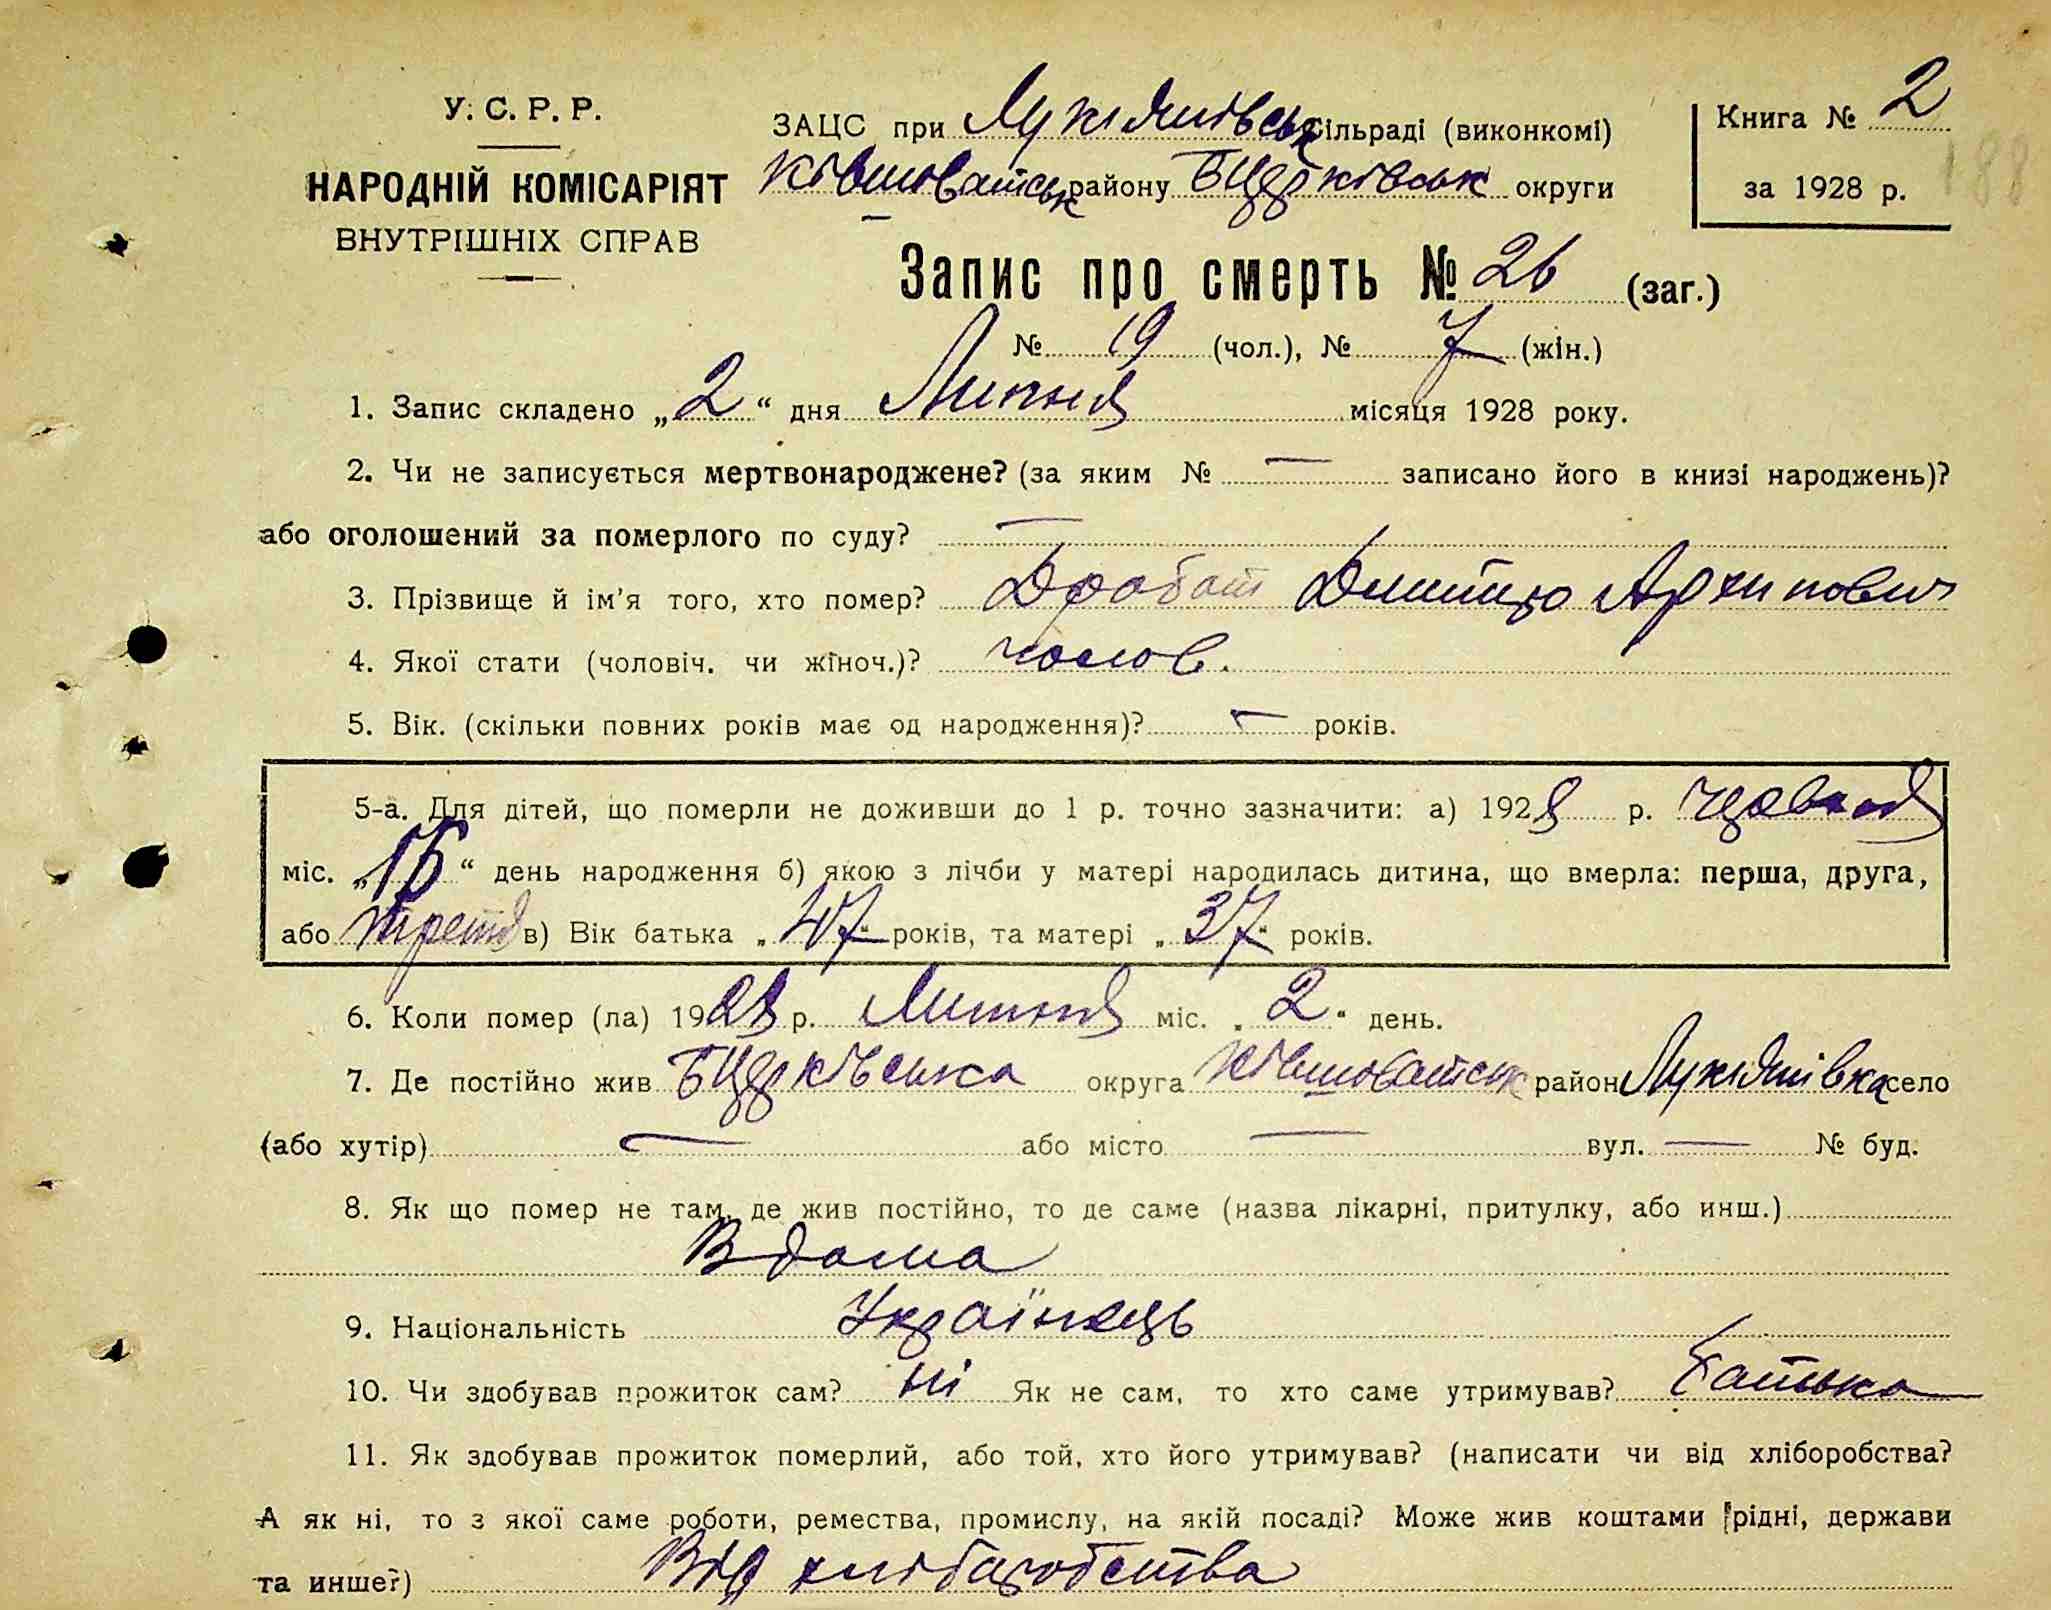 У. С. Р. Р.
НАРОДНІЙ КОМІСАРІЯТ
ВНУТРІШНІХ СПРАВ
ЗАЦС при Лукіянівськ Сільраді (виконкомі)
Ківшоватськ району БЦерківськ округи
Книга № 2
за 1928 р.
188
Запис про смерть № 26 (заг.)
№ 19 (чол.), № 7 (жін.)
1. Запис складено „2“ дня Липня місяця 1928 року.
2. Чи не записується мертвонароджене? (за яким № — записано його в книзі народжень)?
або оголошений за померлого по суду? —
3. Прізвище й ім'я того, хто помер? Драбат Дмитро Архипович
4. Якої стати (чоловіч. чи жіноч.)? чолов.
5. Вік. (скільки повних років має од народження)? — років.
5-а. Для дітей, що померли не доживши до 1 р. точно зазначити: а) 1928 р. червня
міс. „15“ день народження б) якою з лічби у матері народилась дитина, що вмерла: перша, друга,
або третя в) Вік батька „47“ років, та матері „37“ років.
6. Коли помер (ла) 1928 р. Липня міс. „2“ день.
7. Де постійно жив БЦерківська округа Ківшоватськ район Лукіянівка село
(або хутір) — або місто — вул. — № буд.
8. Як що помер не там, де жив постійно, то де саме (назва лікарні, притулку, або инш.)
Вдома
9. Національність Українець
10. Чи здобував прожиток сам? ні Як не сам, то хто саме утримував? батько
11. Як здобував прожиток померлий, або той, хто його утримував? (написати чи від хліборобства?
А як ні, то з якої саме роботи, ремества, промислу, на якій посаді? Може жив коштами рідні, держави
та инше?) Від хліборобства